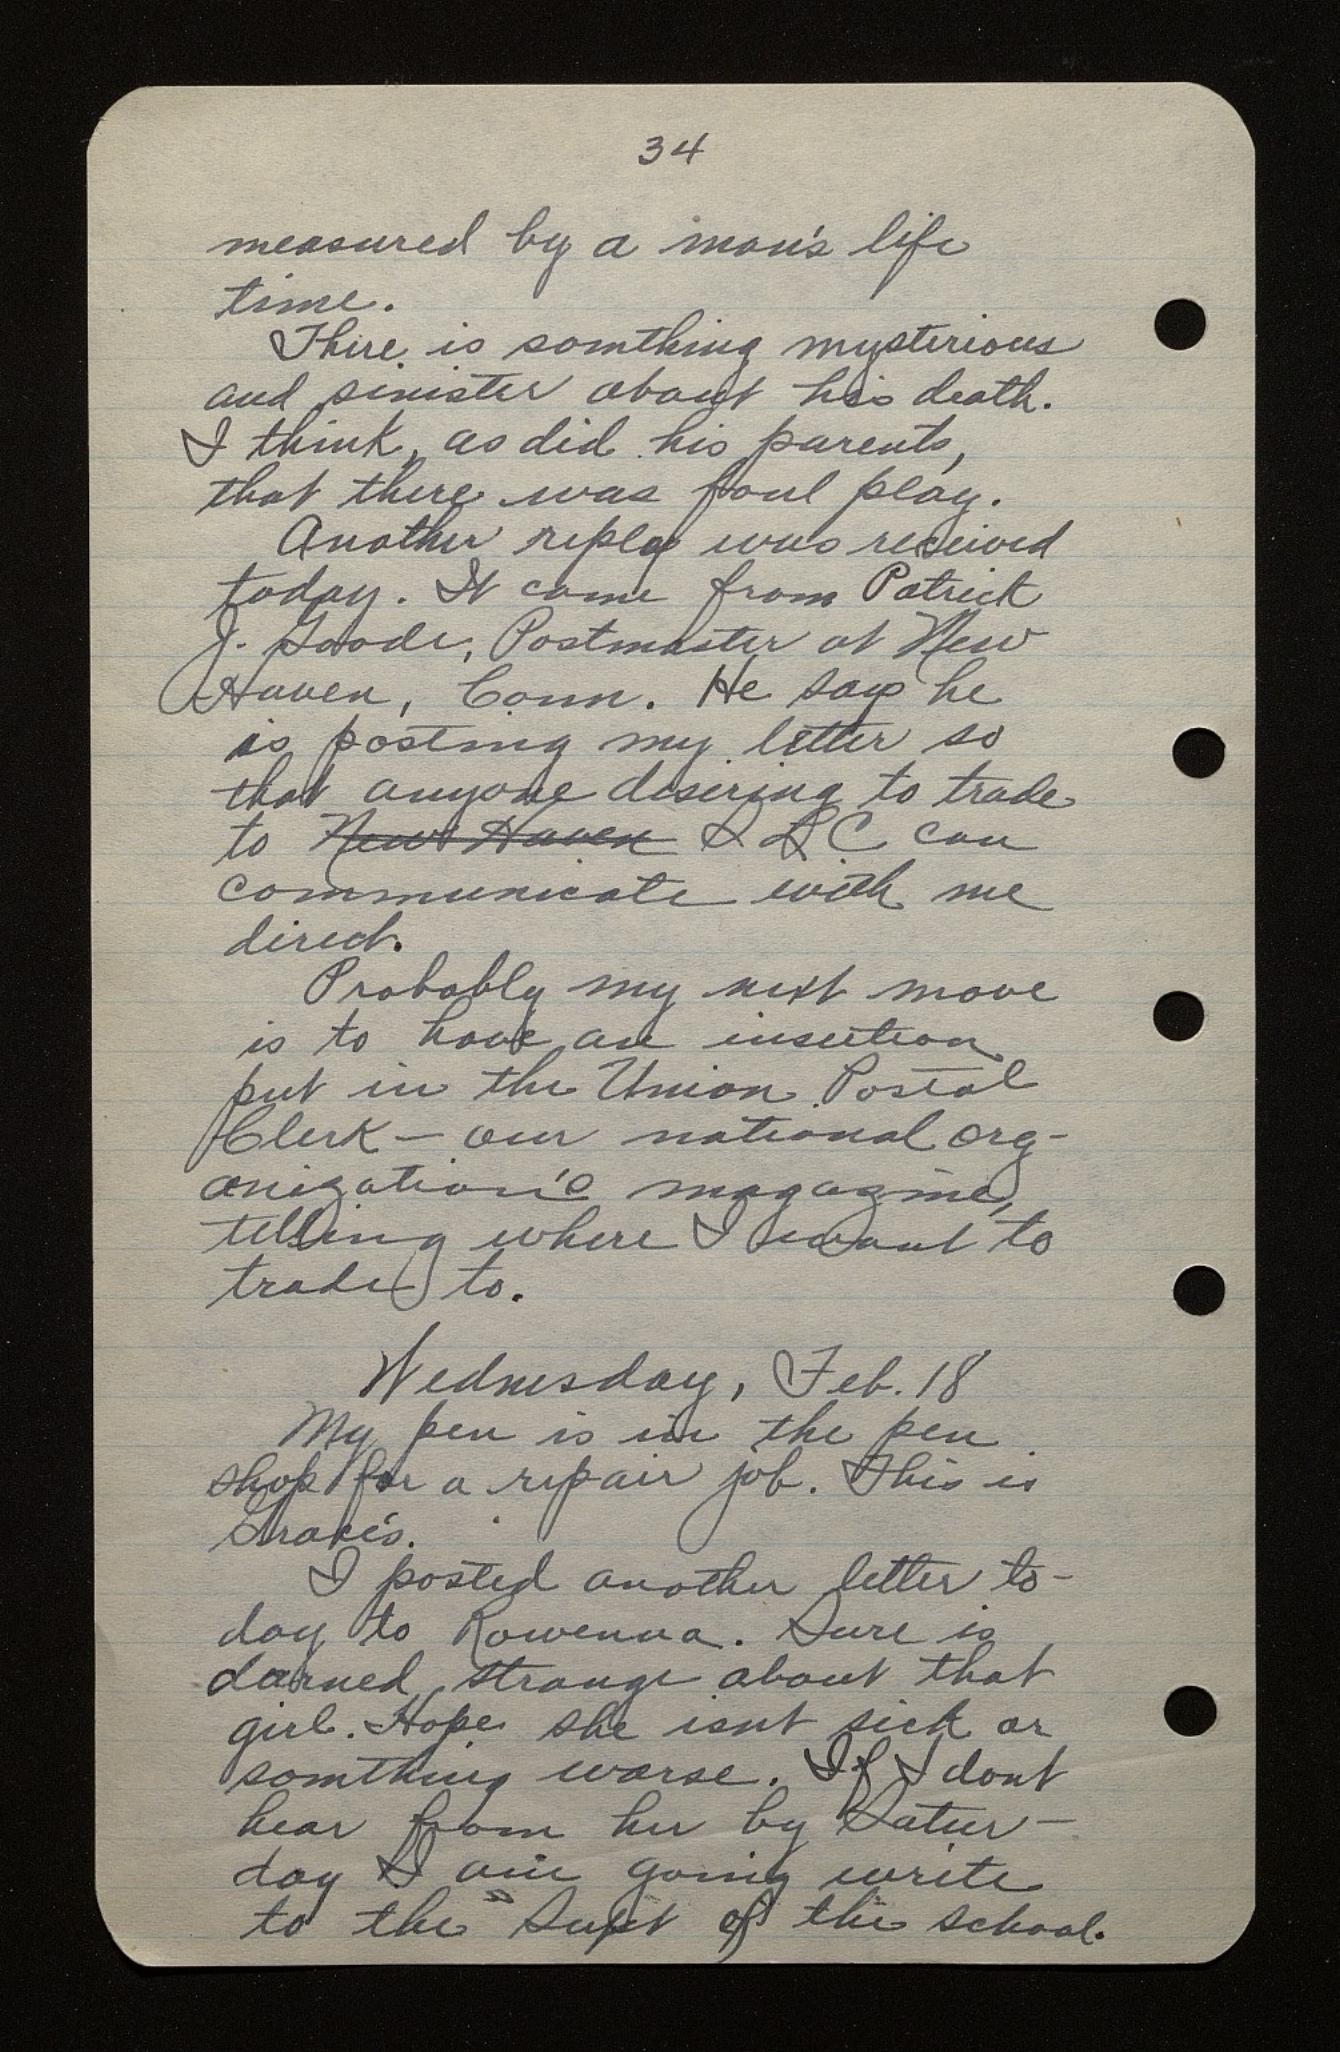 34
measured by a man's life
time.
There is somthing mysterious
and sinister about his death.
I think, as did his parents,
that there was foul play.
Another reply was received
today. It came from Patrick
J. Goode, Postmaster at New
Haven, Conn. He says he
is posting my letter so
that anyone desiring to trade
to New Haven S L C can
communicate with me
direct.
Probably my next move
is to have an insertion
put in the Union Postal
Clerk — our national org-
anization's magazine,
telling where I want to
trade to.
Wednesday, Feb. 18
My pen is in the pen
shop for a repair job. This is
Grace's.
I posted another letter to-
day to Rowenna. Sure is
darned strange about that
girl. Hope she isnt sick or
somthing worse. If I dont
hear from her by Satur-
day I am going write
to the Supt of the school.